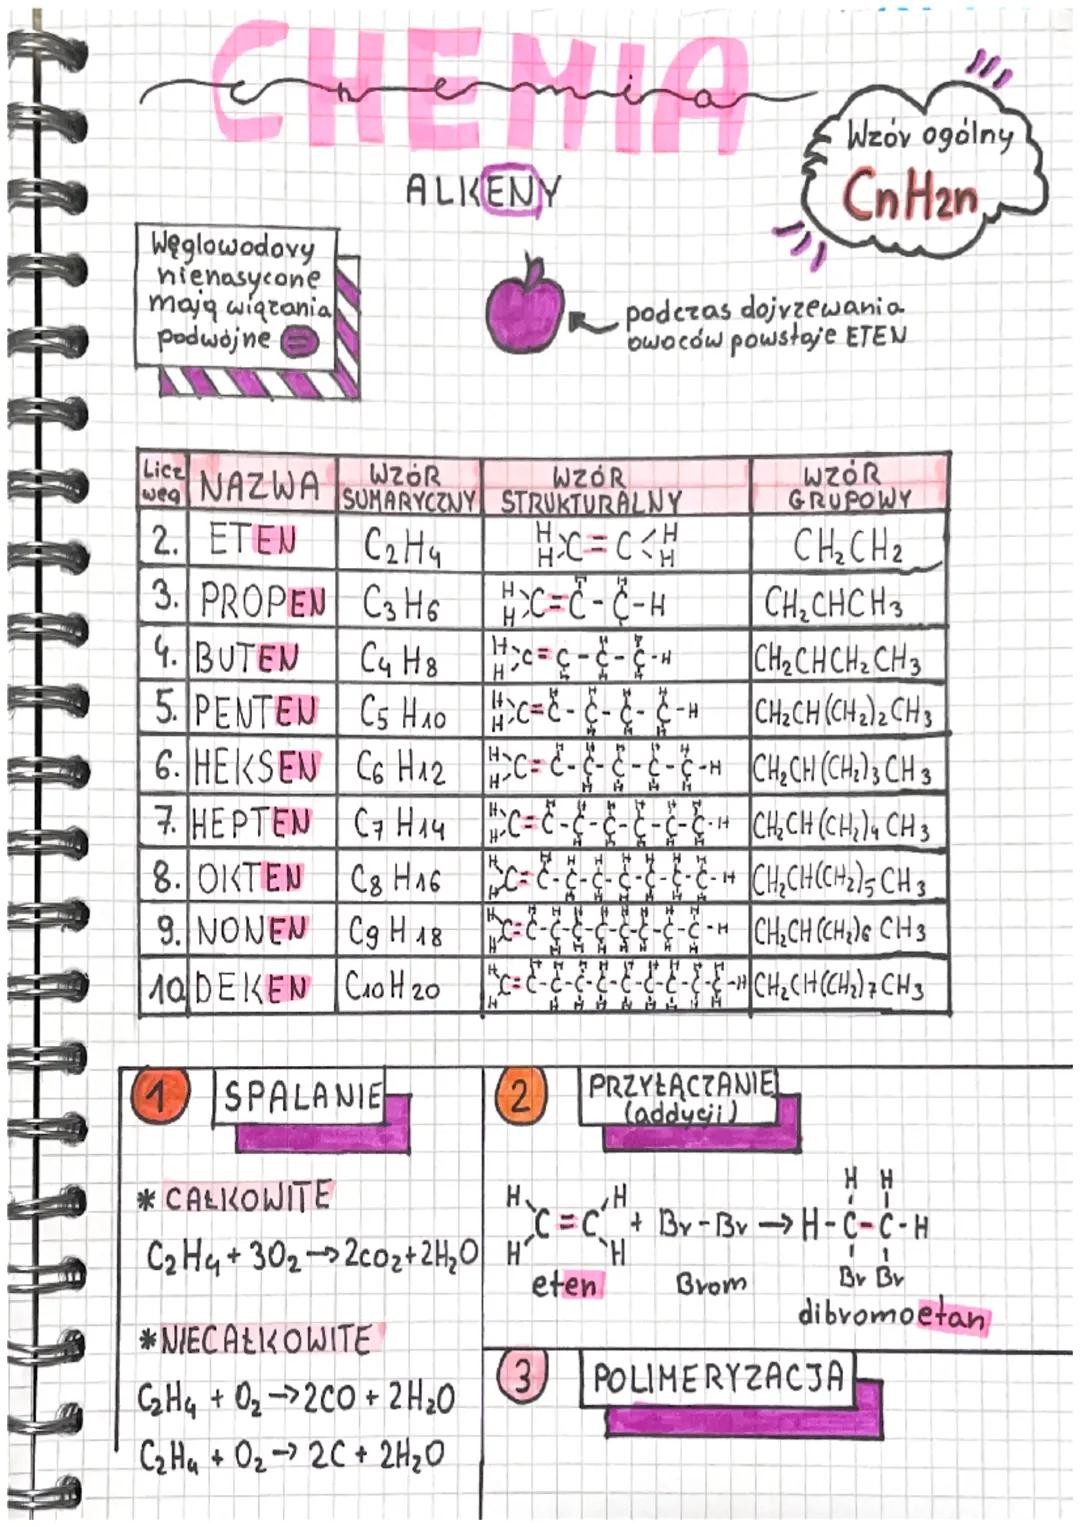 CHEMIA
chemia
ALKENY
Wzór ogólny
CnH2n
Węglowodory
nienasycone
mają wiązania
podwójne =
podczas dojrzewania
owoców powstaje ETEN
Licz węg NAZWA WZÓR SUMARYCZNY WZÓR STRUKTURALNY WZÓR GRUPOWY
2. ETEN C2H4 H H C=C H H CH2CH2
3. PROPEN C3H6 H H C=C-C-H H H CH2CHCH3
4. BUTEN C4H8 H H C=C-C-C-H CH2CHCH2CH3
5. PENTEN C5H10 H H C=C-C-C-C-H CH2CH(CH2)2CH3
6. HEKSEN C6H12 H H C=C-C-C-C-C-H CH2CH(CH2)3CH3
7. HEPTEN C7H14 H H C=C-C-C-C-C-C-H CH2CH(CH2)4CH3
8. OKTEN C8H16 H H C=C-C-C-C-C-C-C-H CH2CH(CH2)5CH3
9. NONEN C9H18 H H C=C-C-C-C-C-C-C-C-H CH2CH(CH2)6CH3
10 DEKEN C10H20 H H C=C-C-C-C-C-C-C-C-C-H CH2CH(CH2)7CH3
1 SPALANIE
* CAŁKOWITE
C2H4 + 3O2 → 2CO2 + 2H2O
* NIECAŁKOWITE
C2H4 + O2 → 2CO + 2H2O
C2H4 + O2 → 2C + 2H2O
2 PRZYŁĄCZANIE
(addycji)
H H H H
C=C + Br-Br → H-C-C-H
H H Br Br
eten Brom
dibromoetan
3 POLIMERYZACJA